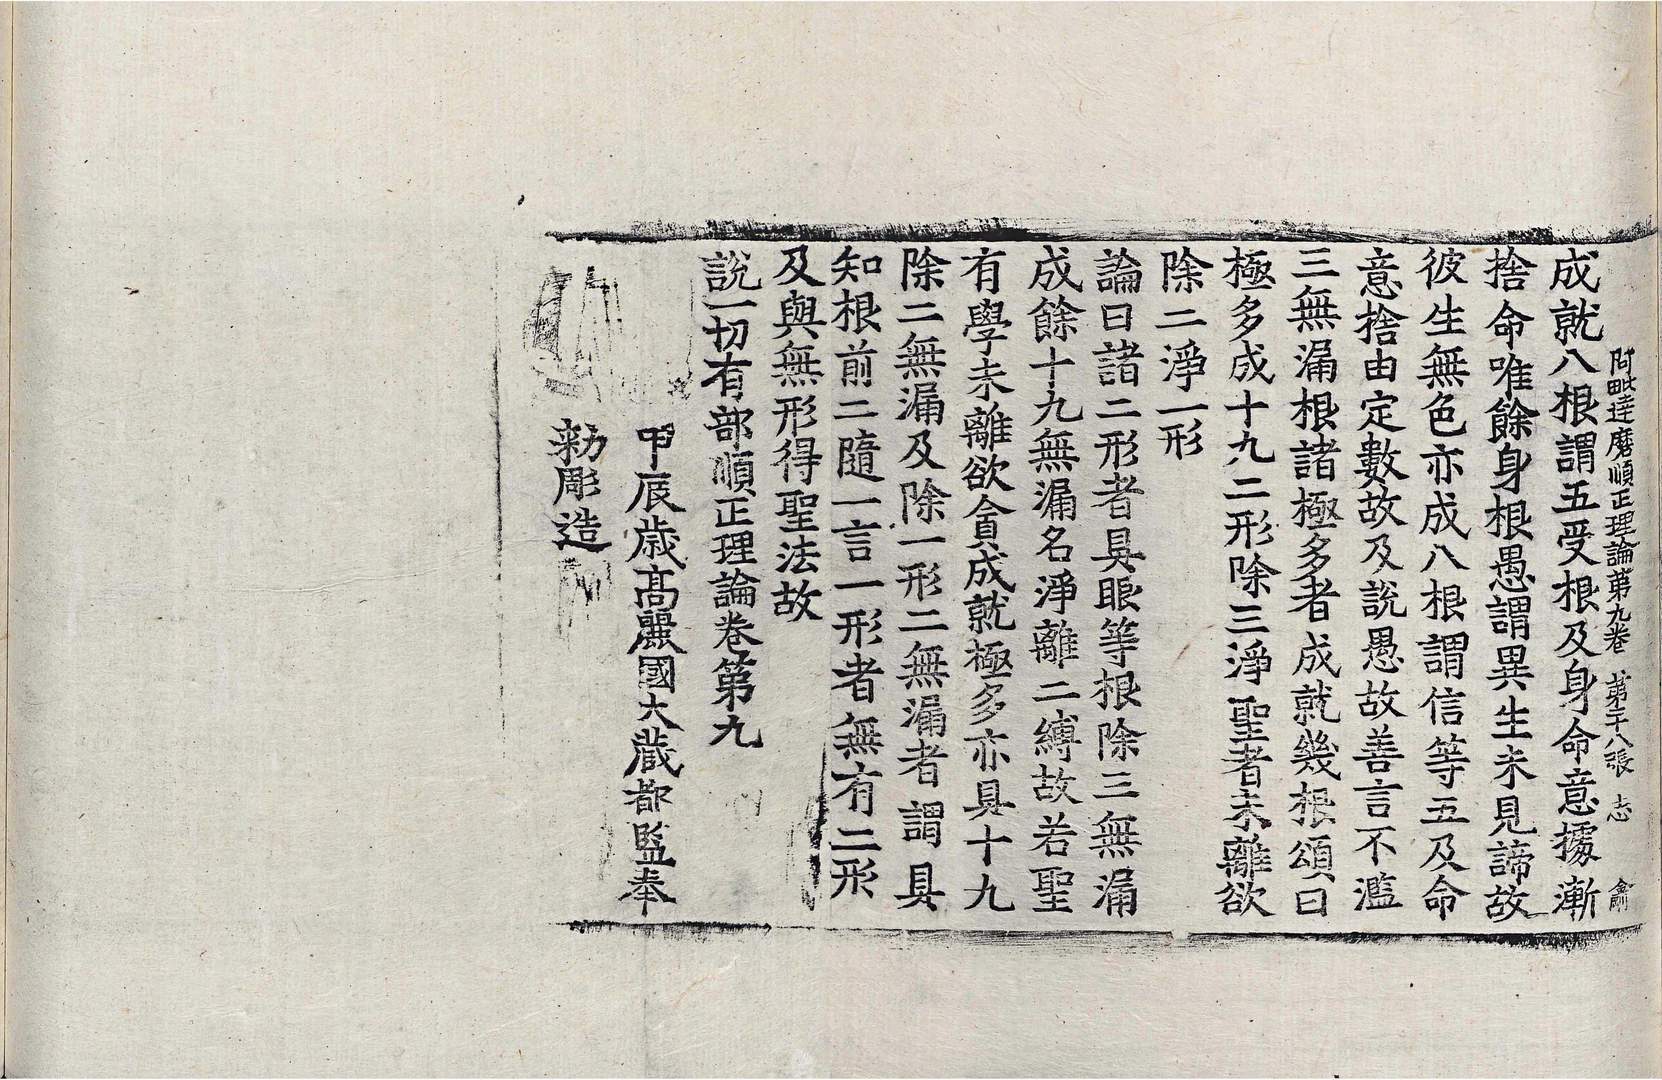 阿毗達磨順正理論第九卷 第二十八張 志
成就八根謂五受根及身命意據漸
捨命唯餘身根愚謂異生未見諦故
彼生無色亦成八根謂信等五及命
意捨由定數故及說愚故善言不濫
三無漏根諸極多者成就幾根頌曰
極多成十九二形除三淨聖者未離欲
除二淨一形
論曰諸二形者具眼等根除三無漏
成餘十九無漏名淨離二縛故若聖
有學未離欲貪成就極多亦具十九
除二無漏及除一形二無漏者謂具
知根前二隨一言一形者無有二形
及與無形得聖法故
說一切有部順正理論卷第九
甲辰歲高麗國大藏都監奉
勑彫造